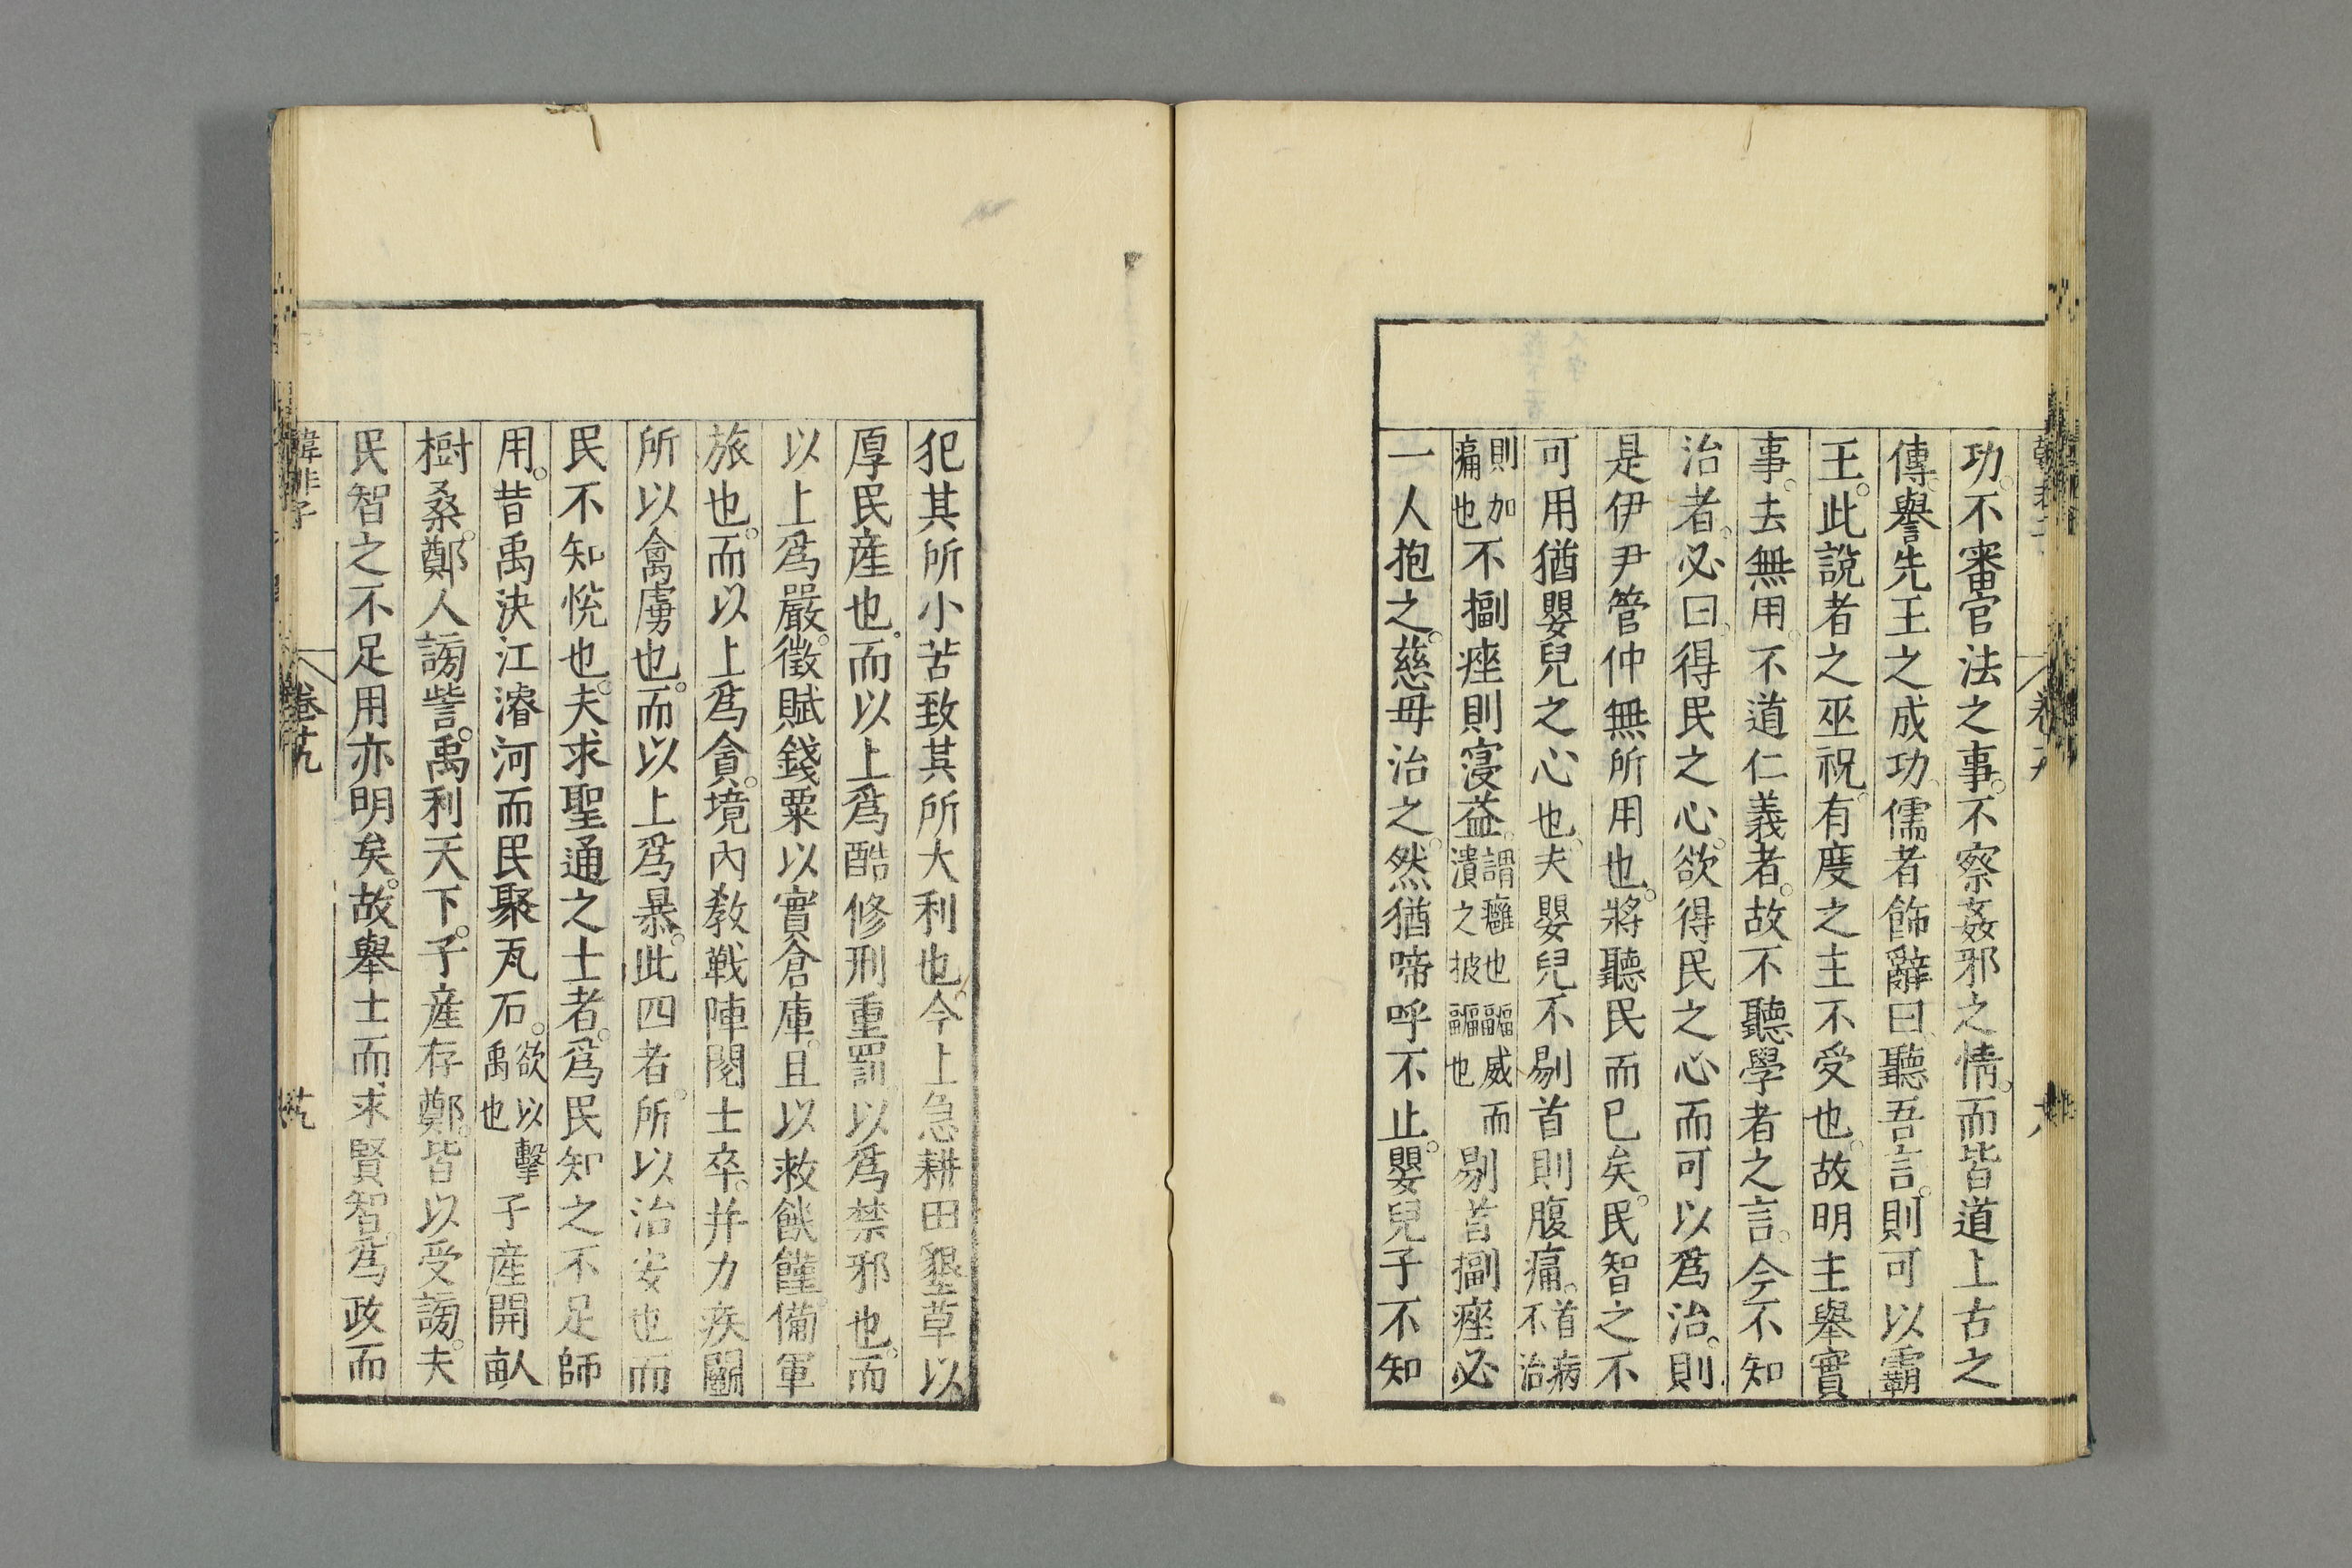 功。不審官法之事。不察姦邪之情。而皆道上古之
傳。譽先王之成功。儒者飾辭曰。聽吾言。則可以霸
王。此說者之巫祝。有度之主不受也。故明主舉實
事。去無用。不道仁義者。故不聽學者之言。今不知
治者。必曰。得民之心。欲得民之心而可以爲治。則
是伊尹管仲無所用也。將聽民而已矣。民智之不
可用猶嬰兒之心也。夫嬰兒不剔首則腹痛。首病不治
則加痛也不揊痤則寖益。謂癰也疈威潰之披疈也而剔首揊痤必
一人抱之。慈母治之。然猶啼呼不止。嬰兒子不知
犯其所小苦致其所大利也。今上急耕田墾草以
厚民產也。而以上爲酷修刑重罰。以爲禁邪也。而
以上爲嚴。徵賦錢粟以實倉庫。且以救餓饉。備軍
旅也。而以上爲貪。境內教戰陣閱士卒。并力疾鬭
所以禽虜也。而以上爲暴。此四者。所以治安也而
民不知悅也。夫求聖通之士者。爲民知之不足師
用。昔禹決江濬河而民聚瓦石。欲以擊禹也子產開畝
樹桑。鄭人謗訾。禹利天下。子產存鄭。皆以受謗。夫
民智之不足用亦明矣。故舉士而求賢智。爲政而
韓非子 卷十九